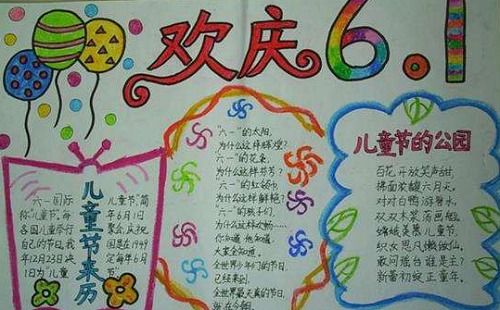 欢庆6.1
儿童节来历
六一国际
儿童节"简
称"儿童节",每
年6月1日
各国儿童举行
自己的节日,我
国是在1949
年12月23日决
定每年6月
1日为"儿童
节"
"六一"的太阳,
为什么这样辉煌?
"六一"的花朵,
为什么这样芬芳?
"六一"的红领巾
为什么这样鲜艳?
"六一"的孩子们,
为什么这样欢畅…
你知道 他知道
大家全知道,
全世界少年们的节日,
已经来到,
全世界最天真的节日,
就在今朝
儿童节的公园
百花开放笑声甜
拂面浓耀六月天。
对对白鸭游碧水,
双双木桨荡画船
织女思凡懒做仙,
敢问瑶台谁是主?
新蕾初绽正童年.